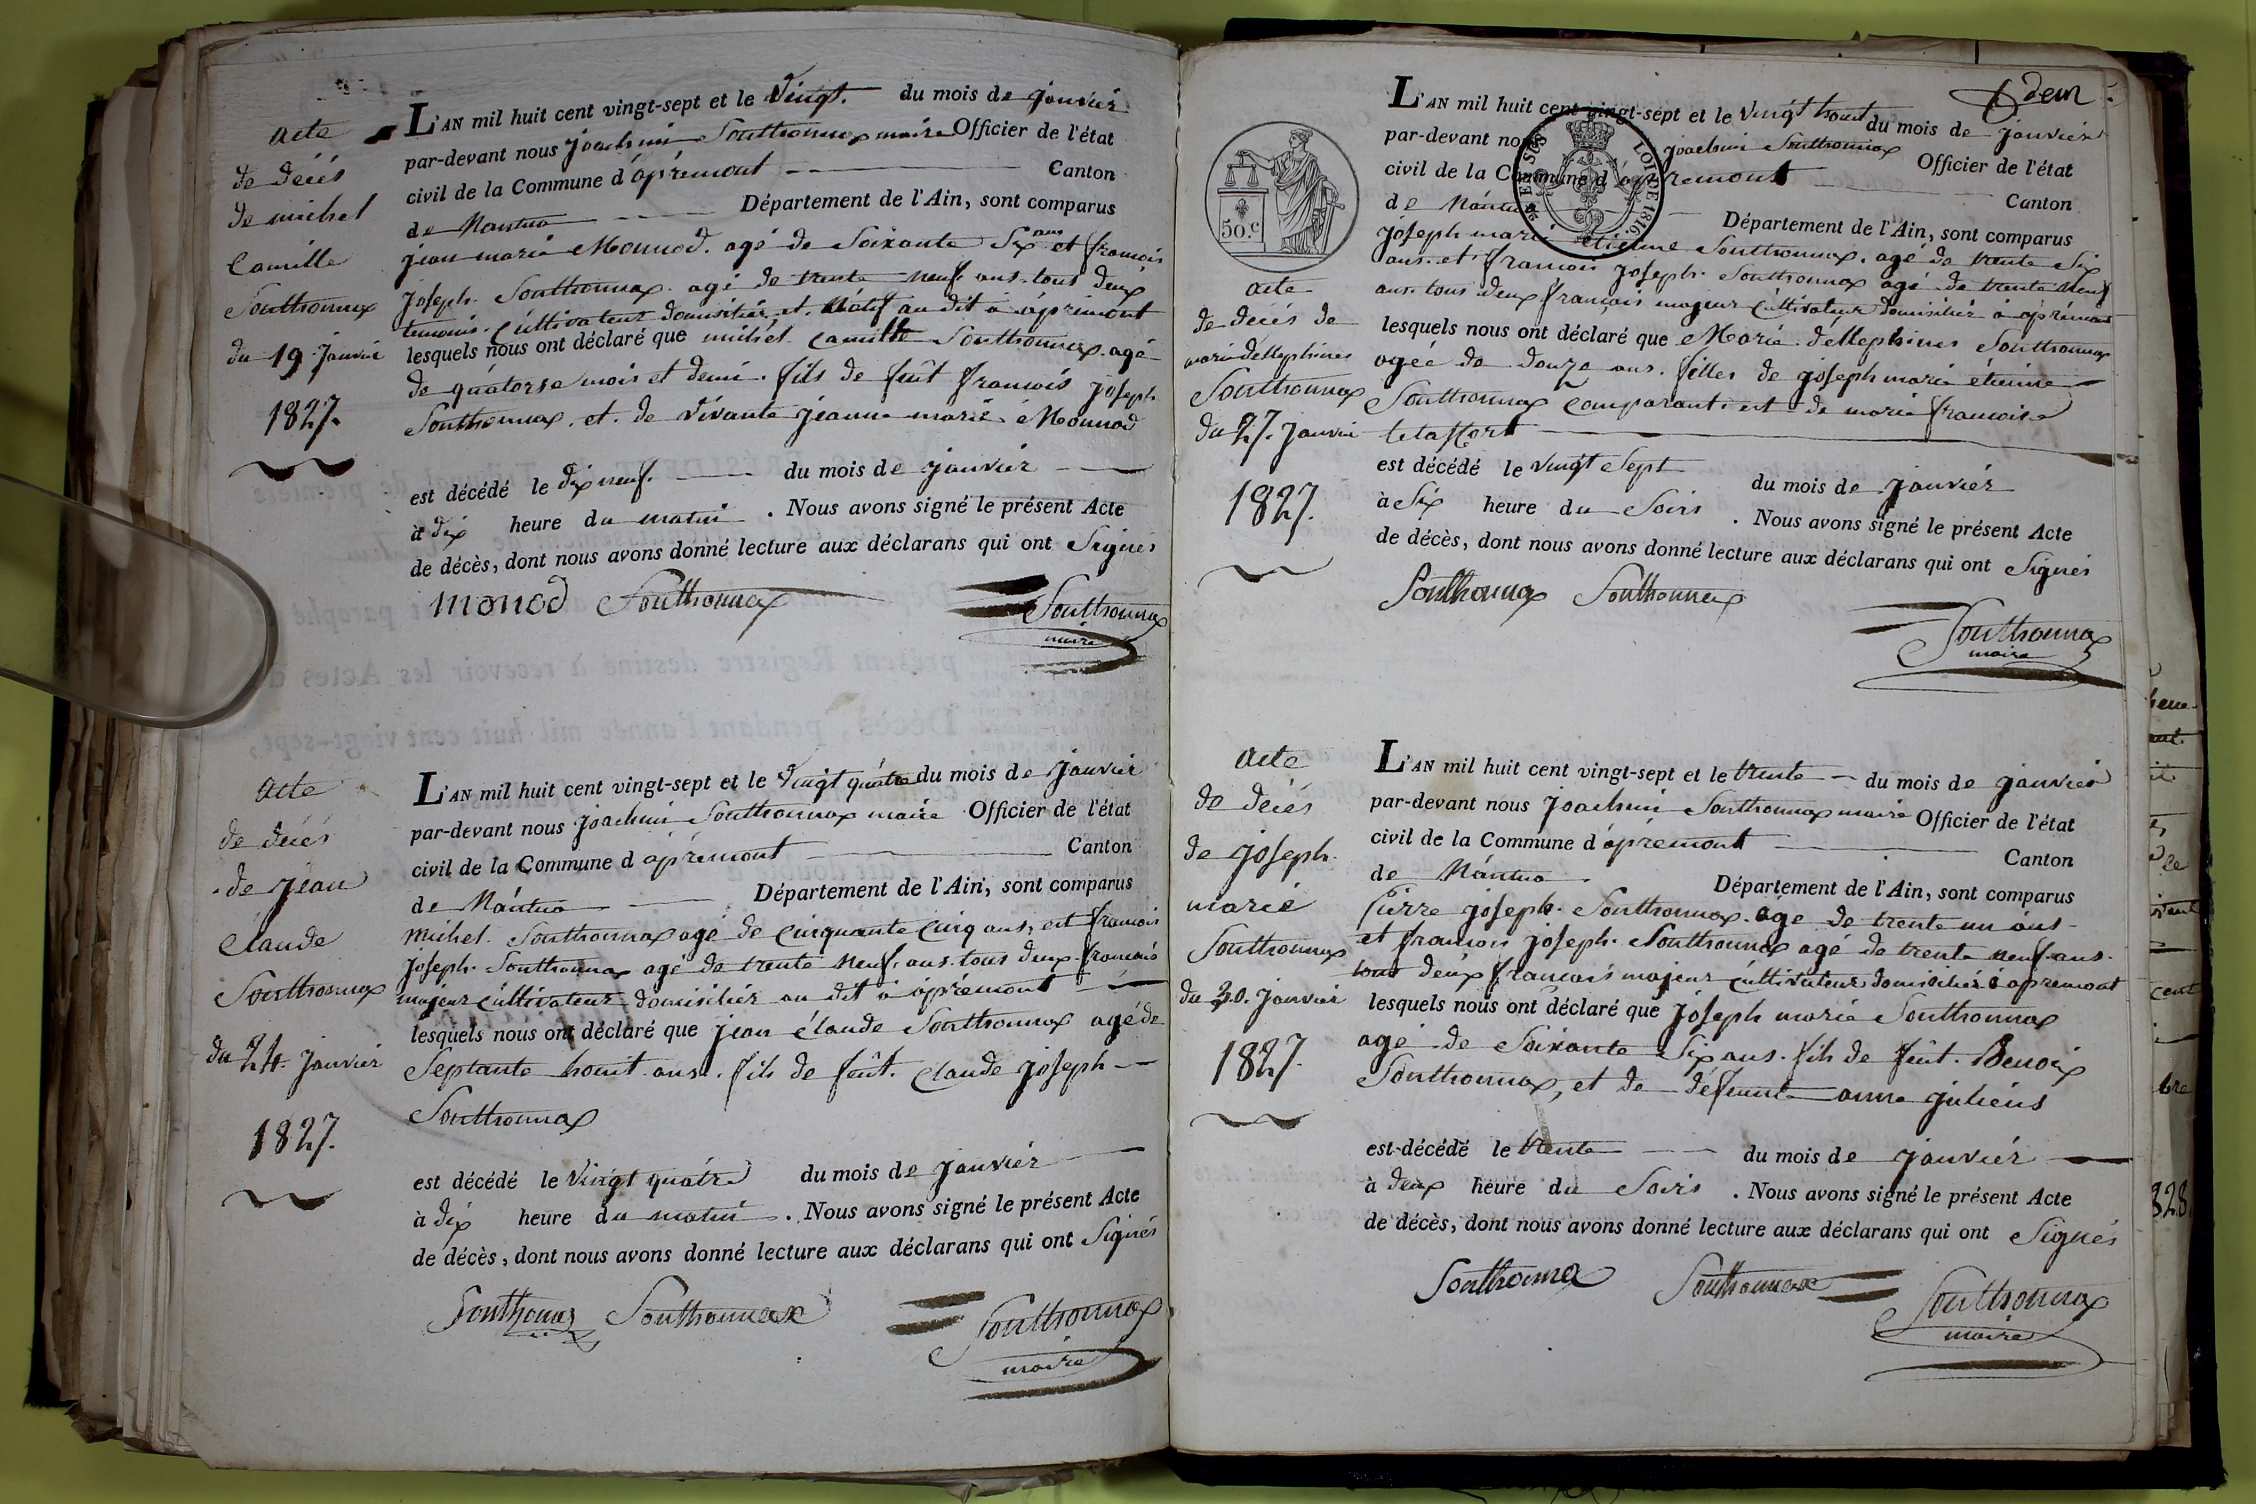 acte
de décés
de michel
Camille
Southonnax
du 19 Janvier
1827.
L'AN mil huit cent vingt-sept et le vingt. du mois de janvier
par-devant nous joachim Southonnax maire Officier de l'état
civil de la Commune d'ápremont Canton
de Nantua Département de l'Ain, sont comparus
jean marie Monnod. agé de Soixante Six ans et francois
joseph. Southonnax. agé de trente neuf ans. tous deux
temoins. Cultivateur domicilier et natif au dit a ápremont
lesquels nous ont déclaré que michel Camille Southonnax. agé
de quátorse mois et demi. fils de feût francois joseph
Southonnax. et. de vivante jeanne marie Monnod
est décédé le dix neuf. du mois de janvier
à dix heure du matin. Nous avons signé le présent Acte
de décès, dont nous avons donné lecture aux déclarans qui ont Signés
monod Southonnax Southonnax
maire
acte
de décés
de jean
Claude
Southonnax
du 24. Janvier
1827.
L'AN mil huit cent vingt-sept et le vingt quátre du mois de Janvier
par-devant nous joachim Southonnax maire Officier de l'état
civil de la Commune d'ápremont Canton
de Nántua Département de l'Ain, sont comparus
michel. Southonnax agé de Cinquante Cinq ans, et francois
joseph. Southonnax agé de trente neuf. ans. tous deux francais
majeur cultivateur domicilier au dit a ápremont
lesquels nous ont déclaré que jean Claude Southonnax agé de
Septante houit ans. fils de feût. Claude joseph
Southonnax
est décédé le vingt quátre du mois de janvier
à dix heure du matin. Nous avons signé le présent Acte
de décès, dont nous avons donné lecture aux déclarans qui ont Signés
Southonax Southonnax Southonnax
maire
idem
50.C
LOI DE 1816.
acte
de décés de
marie dellephines
Southonnax
du 27. Janvier
1827.
L'AN mil huit cent vingt-sept et le vingt houit du mois de janvier
par-devant nous joachim Southonnax Officier de l'état
civil de la Commune d'ápremont Canton
de Nántua Département de l'Ain, sont comparus
joseph marie étienne Southonnax. agé de trente Six
ans. et francois joseph. Southonnax agé de trente neuf
ans. tous deux francais majeur Cultivateur domicilier à ápremont
lesquels nous ont déclaré que Marie dellephines Southonnax
agée de douze ans. filles de joseph marie étienne
Southonnax Comparant. et de marie francoise
est décédé le vingt Sept du mois de janvier
à Six heure du Soirs. Nous avons signé le présent Acte
de décès, dont nous avons donné lecture aux déclarans qui ont Signés
Southonnax Southonnax
Southonnax
maire
acte
de décés
de joseph.
marie
Southonnax
du 30. janvier
1827.
L'AN mil huit cent vingt-sept et le trente du mois de janvier
par-devant nous joachim Southonnax maire Officier de l'état
civil de la Commune d'ápremont Canton
de Nántua Département de l'Ain, sont comparus
Pierre joseph. Southonnax. agé de trente un ans
et francois joseph. Southonnax agé de trente neuf ans.
tous deux francais majeur cultivateur domicilier à apremont
lesquels nous ont déclaré que joseph marie Southonnax
agé de Soixante Six ans. fils de feût. Benoix
Southonnax, et de défunte anne juliens
est décédé le trente du mois de janvier
à deux heure du Soirs. Nous avons signé le présent Acte
de décès, dont nous avons donné lecture aux déclarans qui ont Signés
Southonnax Southonnax Southonnax
maire